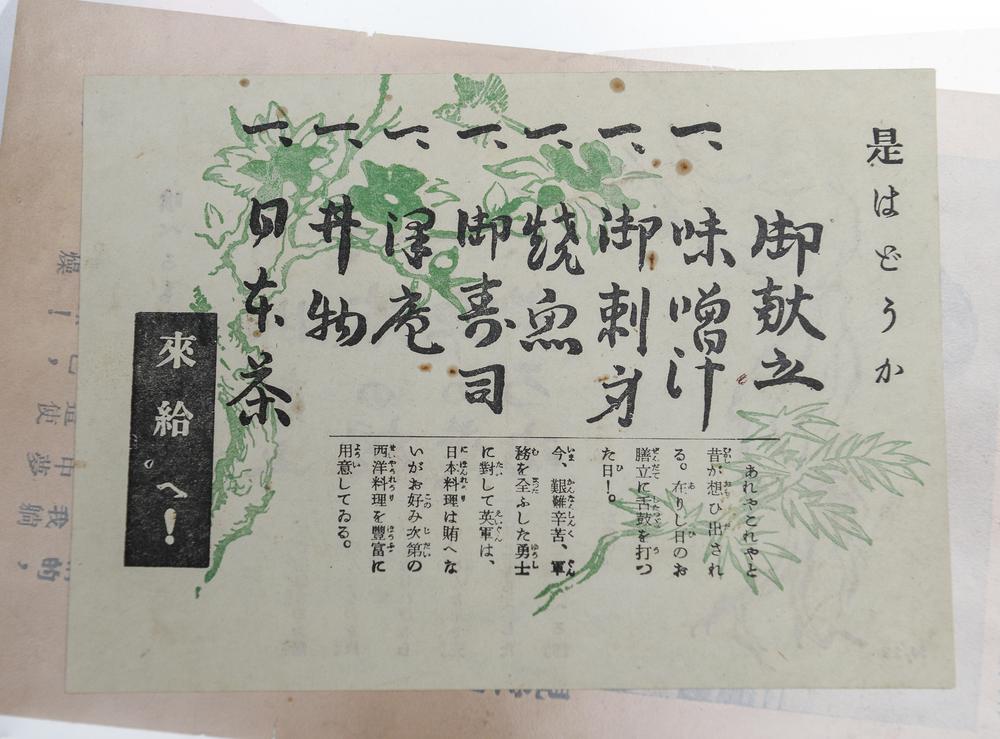 是はどうか
御献立
一、味噌汁
一、御刺身
一、燒魚
一、御寿司
一、澤庵
一、丼物
一、日本茶
あれやこれやと
昔が想ひ出され
る。在りし日のお
膳立に舌鼓を打つ
た日!。
今、艱難辛苦、軍
務を全ふした勇士
に對して英軍は、
日本料理は賄へな
いがお好み次第の
西洋料理を豐富に
用意してゐる。
來給へ!